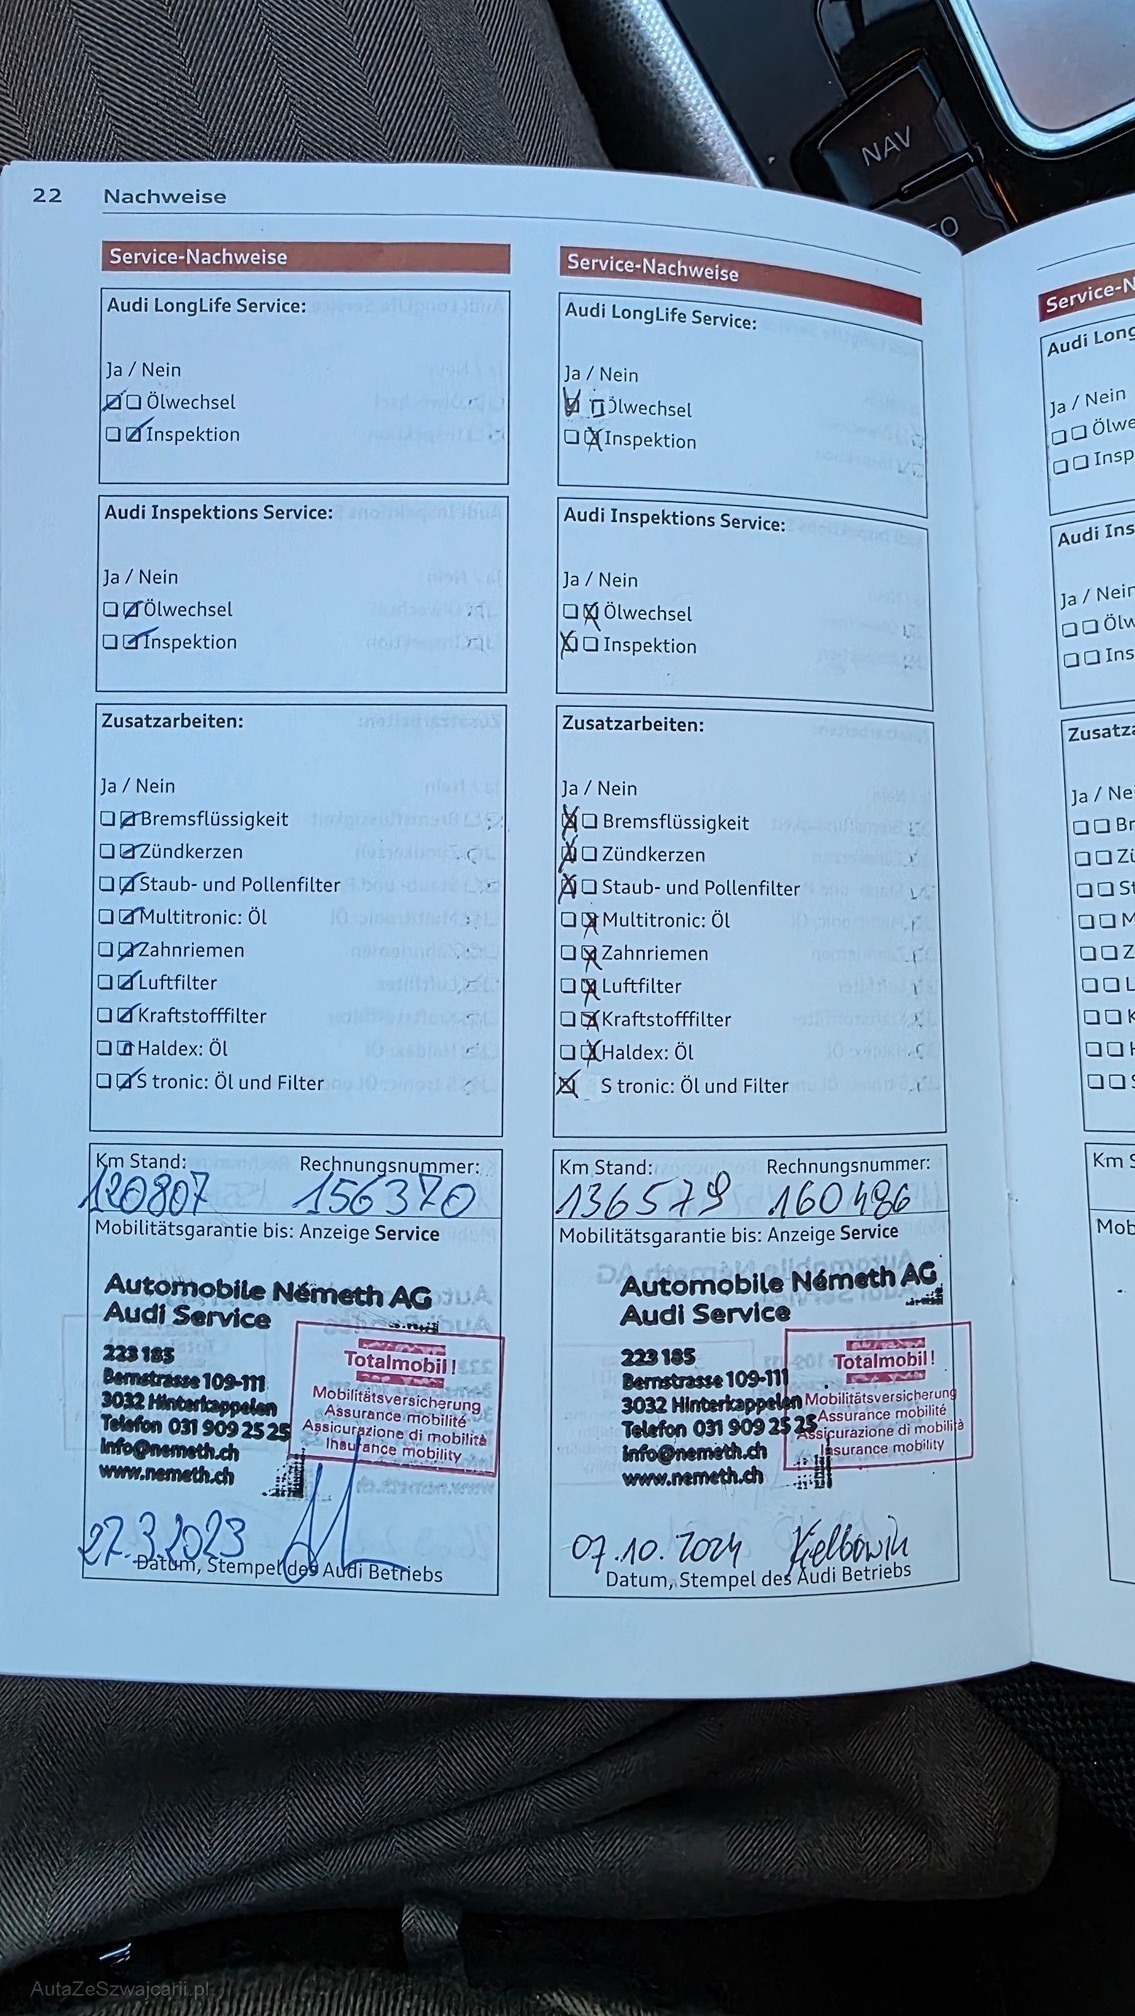 NAV
22 Nachweise
Service-Nachweise
Audi LongLife Service:
Ja / Nein
Ölwechsel
Inspektion
Audi Inspektions Service:
Ja / Nein
Ölwechsel
Inspektion
Zusatzarbeiten:
Ja / Nein
Bremsflüssigkeit
Zündkerzen
Staub- und Pollenfilter
Multitronic: Öl
Zahnriemen
Luftfilter
Kraftstofffilter
Haldex: Öl
S tronic: Öl und Filter
Km Stand: Rechnungsnummer:
120807 156370
Mobilitätsgarantie bis: Anzeige Service
Automobile Németh AG
Audi Service
223 185
Bernstrasse 109-111
3032 Hinterkappelen
Telefon 031 909 25 25
info@nemeth.ch
www.nemeth.ch
Totalmobil!
Mobilitätsversicherung
Assurance mobilité
Assicurazione di mobilità
Insurance mobility
27.3.2023
Datum, Stempel des Audi Betriebs
Service-Nachweise
Audi LongLife Service:
Ja / Nein
Ölwechsel
Inspektion
Audi Inspektions Service:
Ja / Nein
Ölwechsel
Inspektion
Zusatzarbeiten:
Ja / Nein
Bremsflüssigkeit
Zündkerzen
Staub- und Pollenfilter
Multitronic: Öl
Zahnriemen
Luftfilter
Kraftstofffilter
Haldex: Öl
S tronic: Öl und Filter
Km Stand: Rechnungsnummer:
136579 160486
Mobilitätsgarantie bis: Anzeige Service
Automobile Németh AG
Audi Service
223 185
Bernstrasse 109-111
3032 Hinterkappelen
Telefon 031 909 25 25
info@nemeth.ch
www.nemeth.ch
Totalmobil!
Mobilitätsversicherung
Assurance mobilité
Assicurazione di mobilità
Insurance mobility
07.10.2024
Datum, Stempel des Audi Betriebs
Service-N
Audi Long
Ja / Nein
Ölwe
Insp
Audi Ins
Ja / Nein
Ölw
Ins
Zusatza
Ja / Ne
Br
Zü
St
M
Z
L
K
H
S
Km S
Mob
AutaZeSzwajcarii.pl